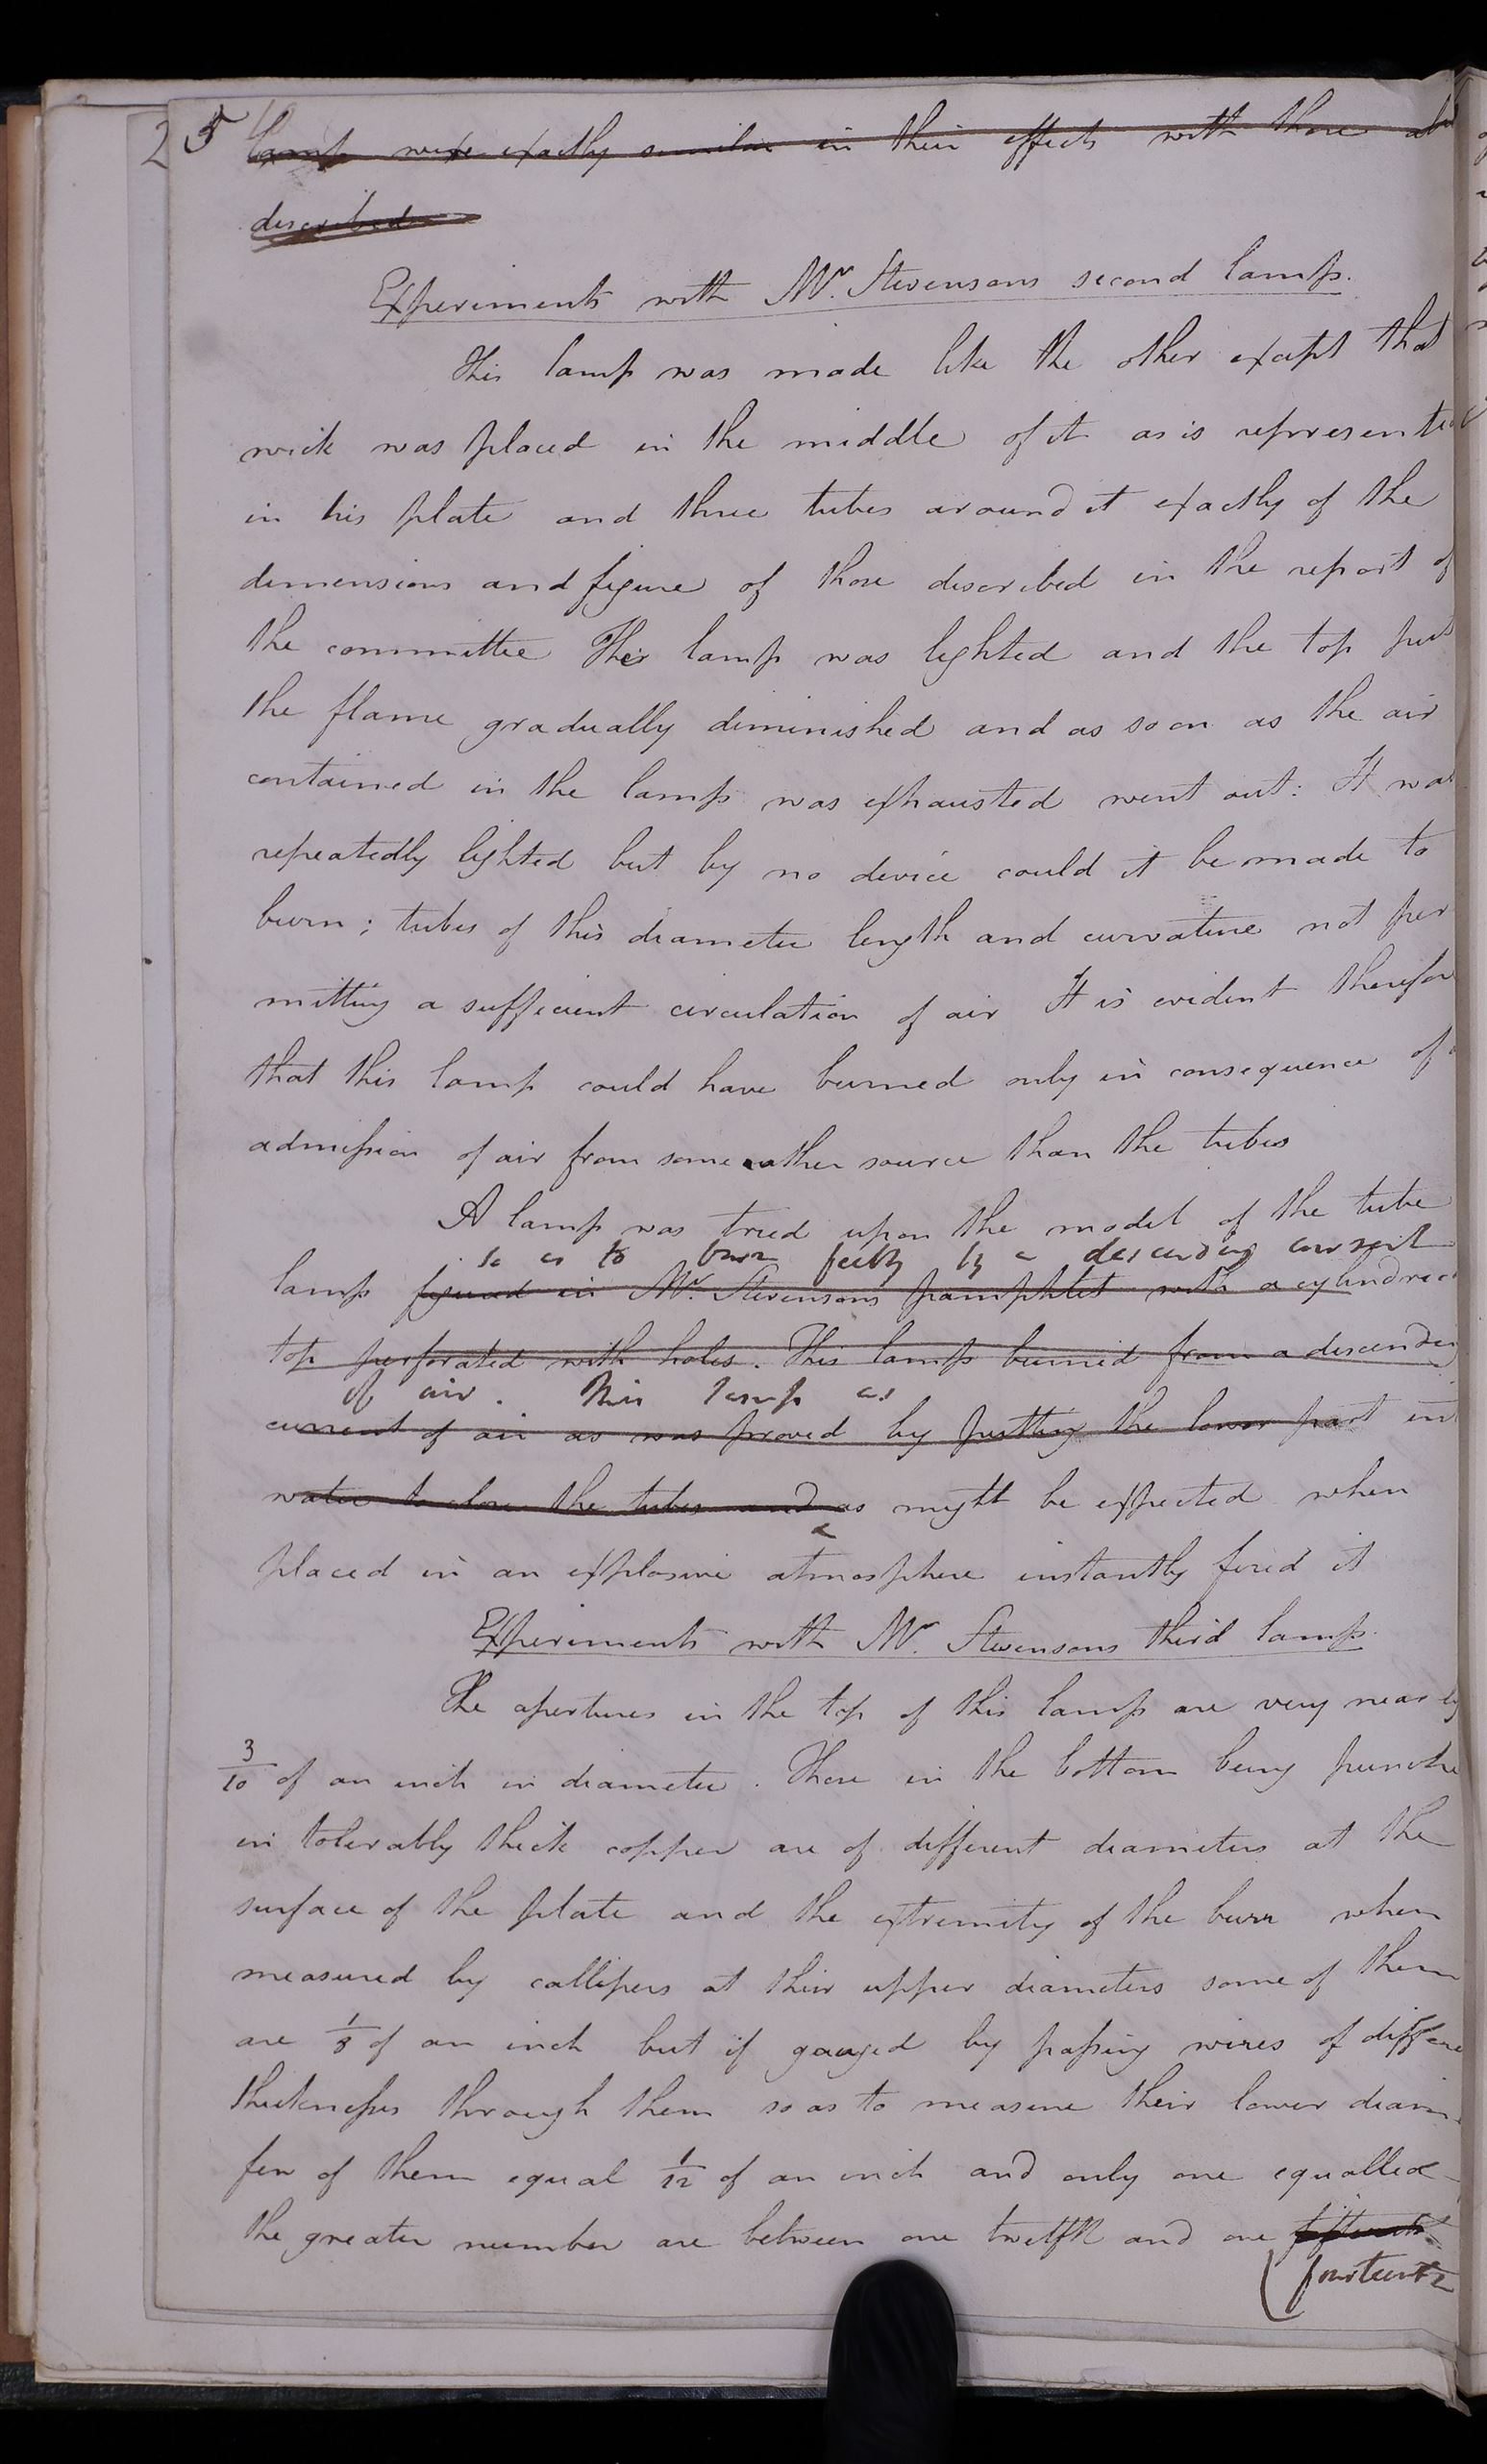 25 lamp were exactly similar in their effects with those
described
Experiments with Mr. Stevensons second lamp.
This lamp was made like the other except that
wick was placed in the middle of it as is represented
in his plate and three tubes around it exactly of the
dimensions and figure of those described in the report of
the committee This lamp was lighted and the top put
the flame gradually diminished and as soon as the air
contained in the lamp was exhausted went out: It was
repeatedly lighted but by no device could it be made to
burn; tubes of this diameter length and curvature not per
mitting a sufficient circulation of air It is evident therefore
that this lamp could have burned only in consequence of
admission of air from some other source than the tubes
A lamp was tried upon the model of the tube
so as to burn feebly by a descending current
lamp figured in Mr. Stevensons pamphlet with a cylindrical
top perforated with holes. This lamp burned from a descending
of air. This lamp as
current of air as was proved by putting the lower part in
water to close the tubes and as might be expected when
placed in an explosive atmosphere instantly fired it
Experiments with Mr. Stevensons third lamp.
The apertures in the top of this lamp are very nearly
3/10 of an inch in diameter. Those in the bottom being punche
in tolerably thick copper are of different diameters at the
surface of the plate and the extremity of the burr when
measured by callipers at their upper diameters some of them
are 1/8 of an inch but if gauged by passing wires of differen
thicknesses through them so as to measure their lower diam
few of them equal 1/12 of an inch and only one equalled
the greater number are between one twelfth and one fifteenth
fourteenth